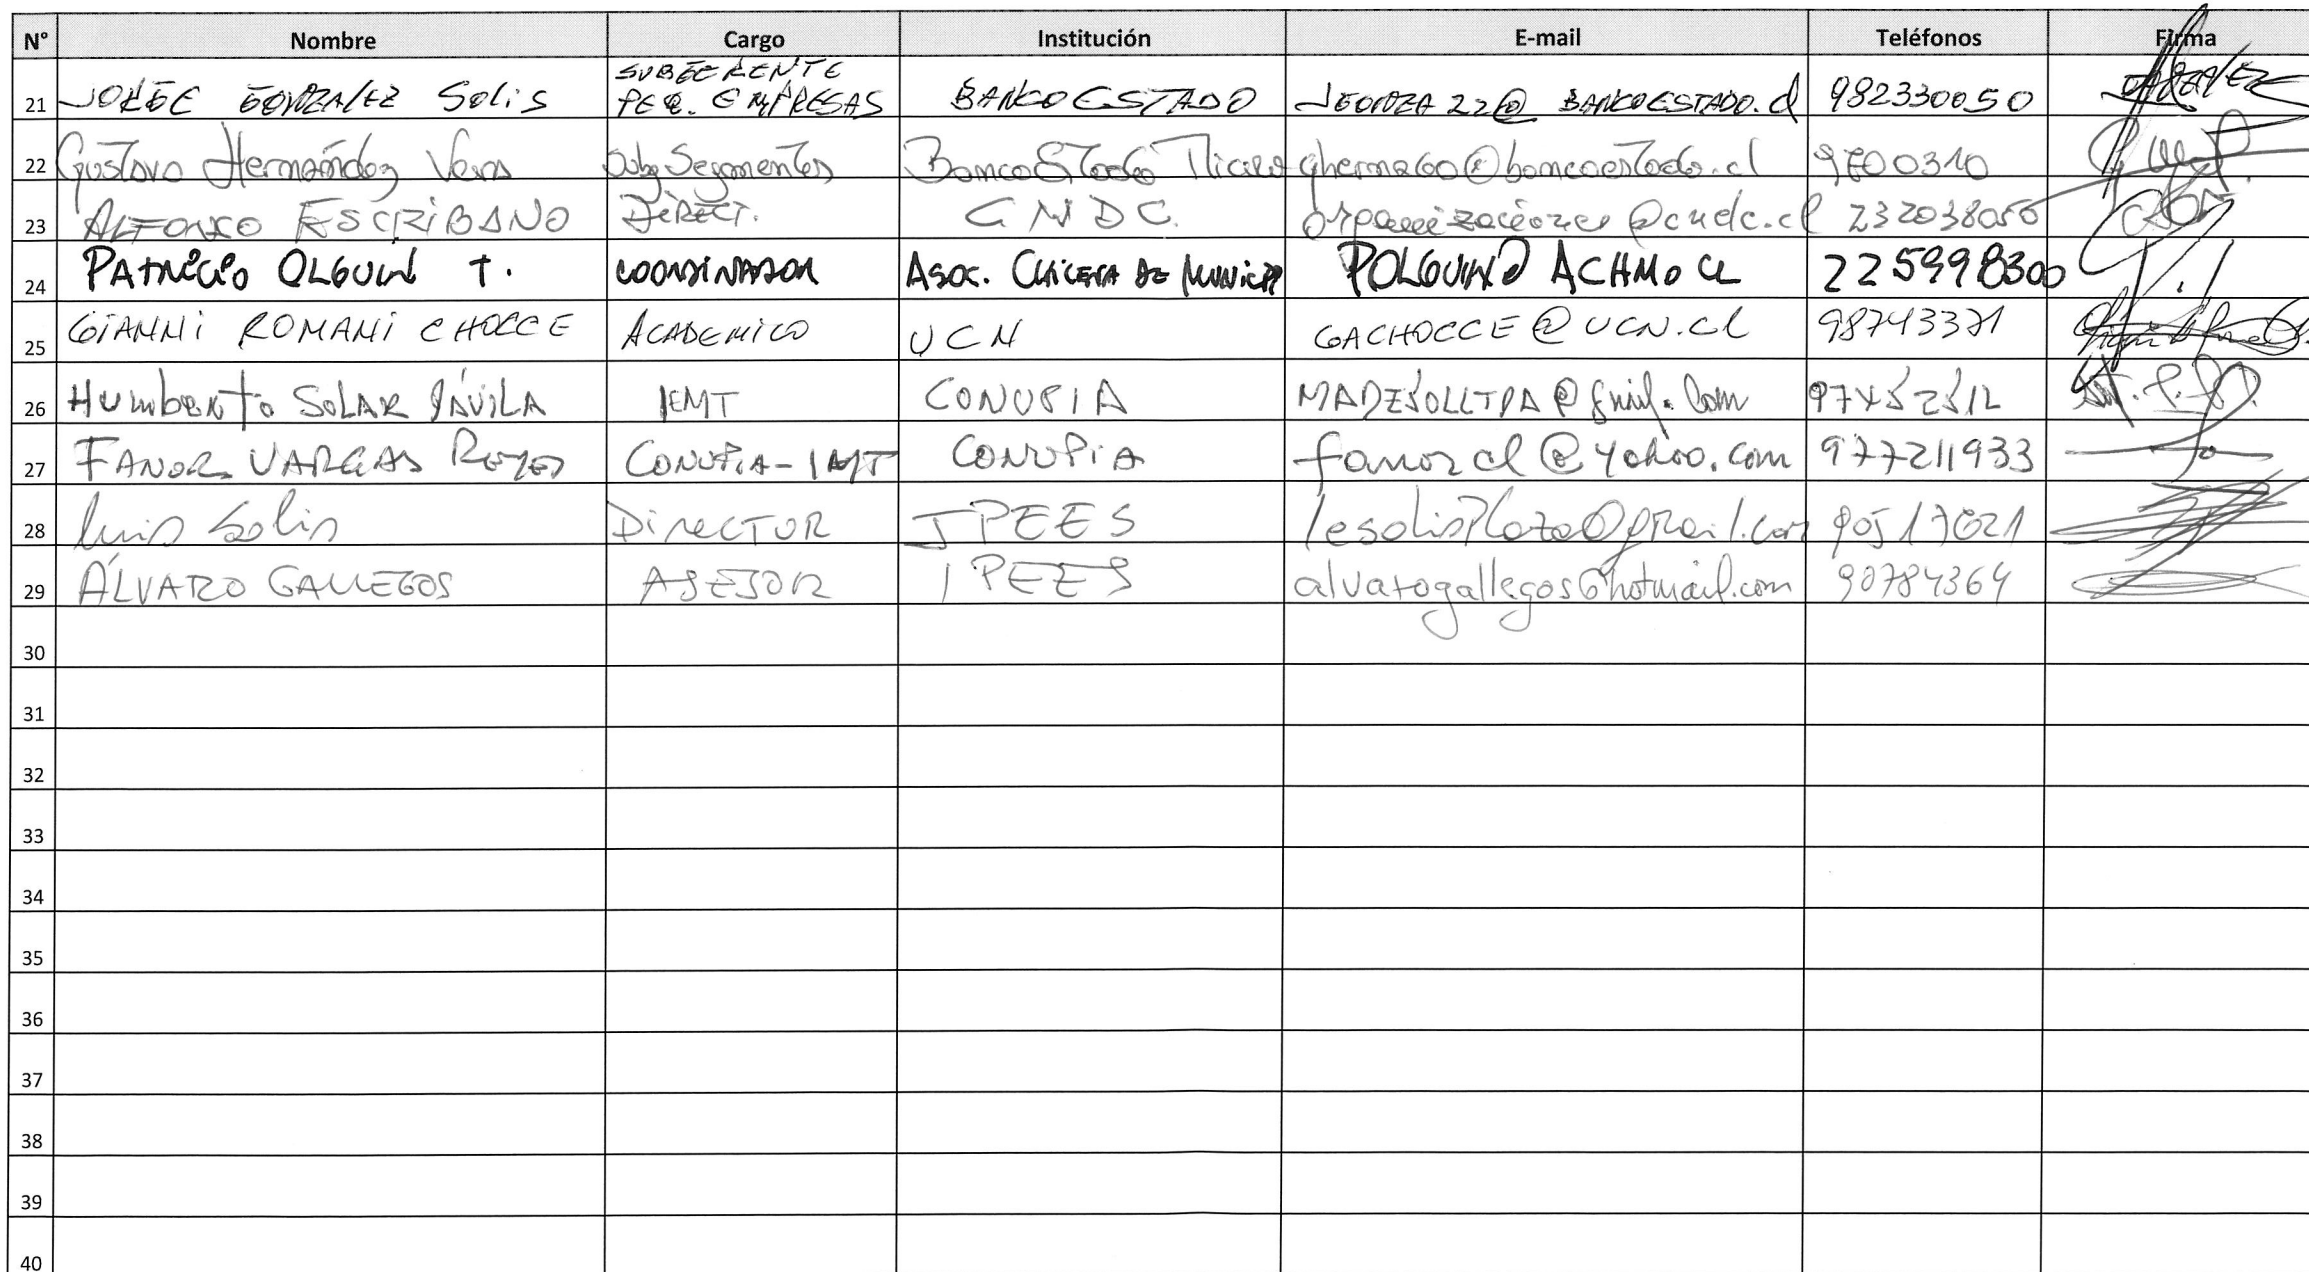 N° Nombre Cargo Institución E-mail Teléfonos Firma
SUBGERENTE
21 JORGE GONZALEZ Solis PEQ. EMPRESAS BANCOESTADO JGONZA22@BANCOESTADO.cl 982330050
22 Gustavo Hernández Vera Subg Segmentos BancoEstado Micro gherna60@bancoestado.cl 9700310
23 ALFONSO ESCRIBANO DIRECT. CNDC. organizaciones@cndc.cl 232038050
24 PATRICIO OLGUIN T. COORDINADOR ASOC. CHILENA DE MUNICIP POLGUIN@ACHM.CL 225998300
25 GIANNI ROMANI CHOCCE ACADEMICO UCN GACHOCCE@UCN.CL 98743371
26 Humberto SOLAR DÁVILA IEMT CONUPIA MADESOLLTDA@gmail.com
27 FANOR VARGAS REYES CONUPIA-IMT CONUPIA fanorcl@yahoo.com 977211933
28 Luis Solis DIRECTOR IPEES lesolisplaza@gmail.com
29 ÁLVARO GALLEGOS ASESOR IPEES alvarogallegos@hotmail.com 90784364
30
31
32
33
34
35
36
37
38
39
40